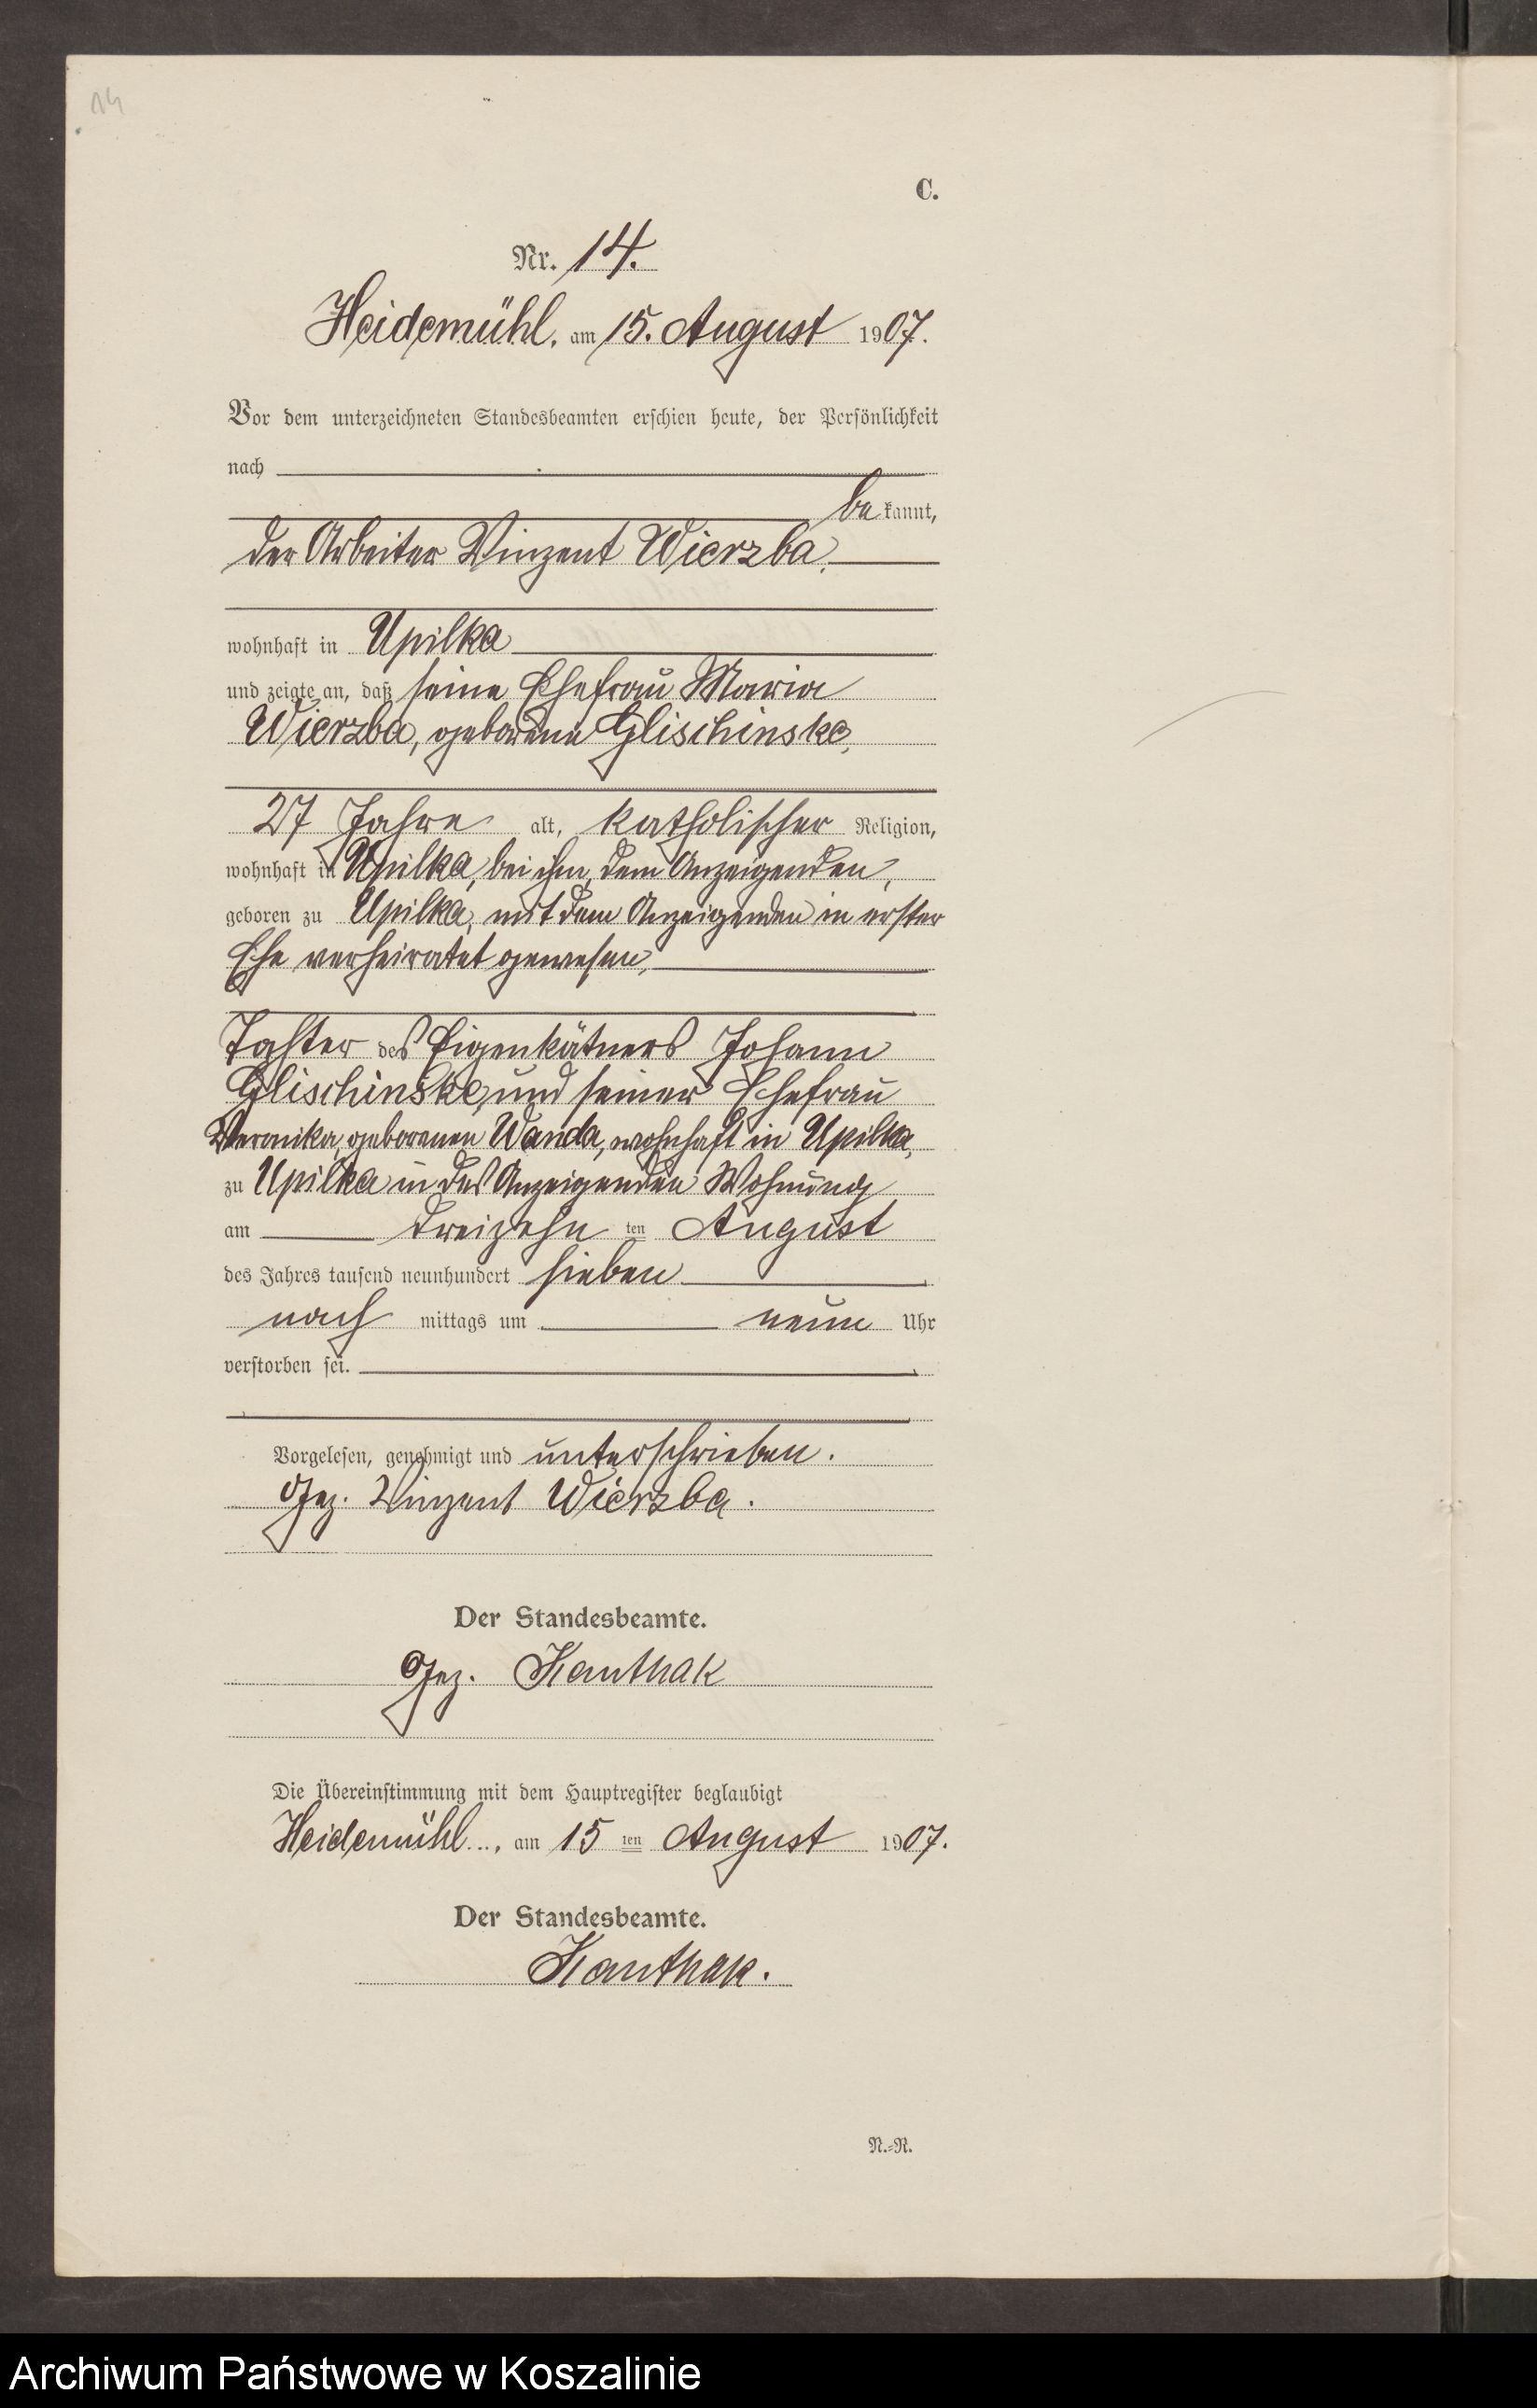 14
C.
Nr. 14.
Heidemühl, am 15. August 1907.
Vor dem unterzeichneten Standesbeamten erschien heute, der Persönlichkeit
nach
be kannt,
der Arbeiter Vinzent Wierzba,
wohnhaft in Upilka
und zeigte an, daß seine Ehefrau Maria
Wierzba, geborene Glischinske,
27 Jahre alt, katholischer Religion,
wohnhaft in Upilka, bei ihm, dem Anzeigenden,
geboren zu Upilka, mit dem Anzeigenden in erster
Ehe verheiratet gewesen,
Tochter des Eigenkätners Johann
Glischinske und seiner Ehefrau
Veronika, geborenen Wanda, wohnhaft in Upilka,
zu Upilka in des Anzeigenden Wohnung
am dreizehn ten August
des Jahres tausend neunhundert sieben
nach mittags um neun Uhr
verstorben sei.
Vorgelesen, genehmigt und unterschrieben.
Gez. Vinzent Wierzba.
Der Standesbeamte.
Gez. Kanthak
Die Übereinstimmung mit dem Hauptregister beglaubigt
Heidemühl, am 15 ten August 1907.
Der Standesbeamte.
Kanthak.
N.-R.
Archiwum Państwowe w Koszalinie